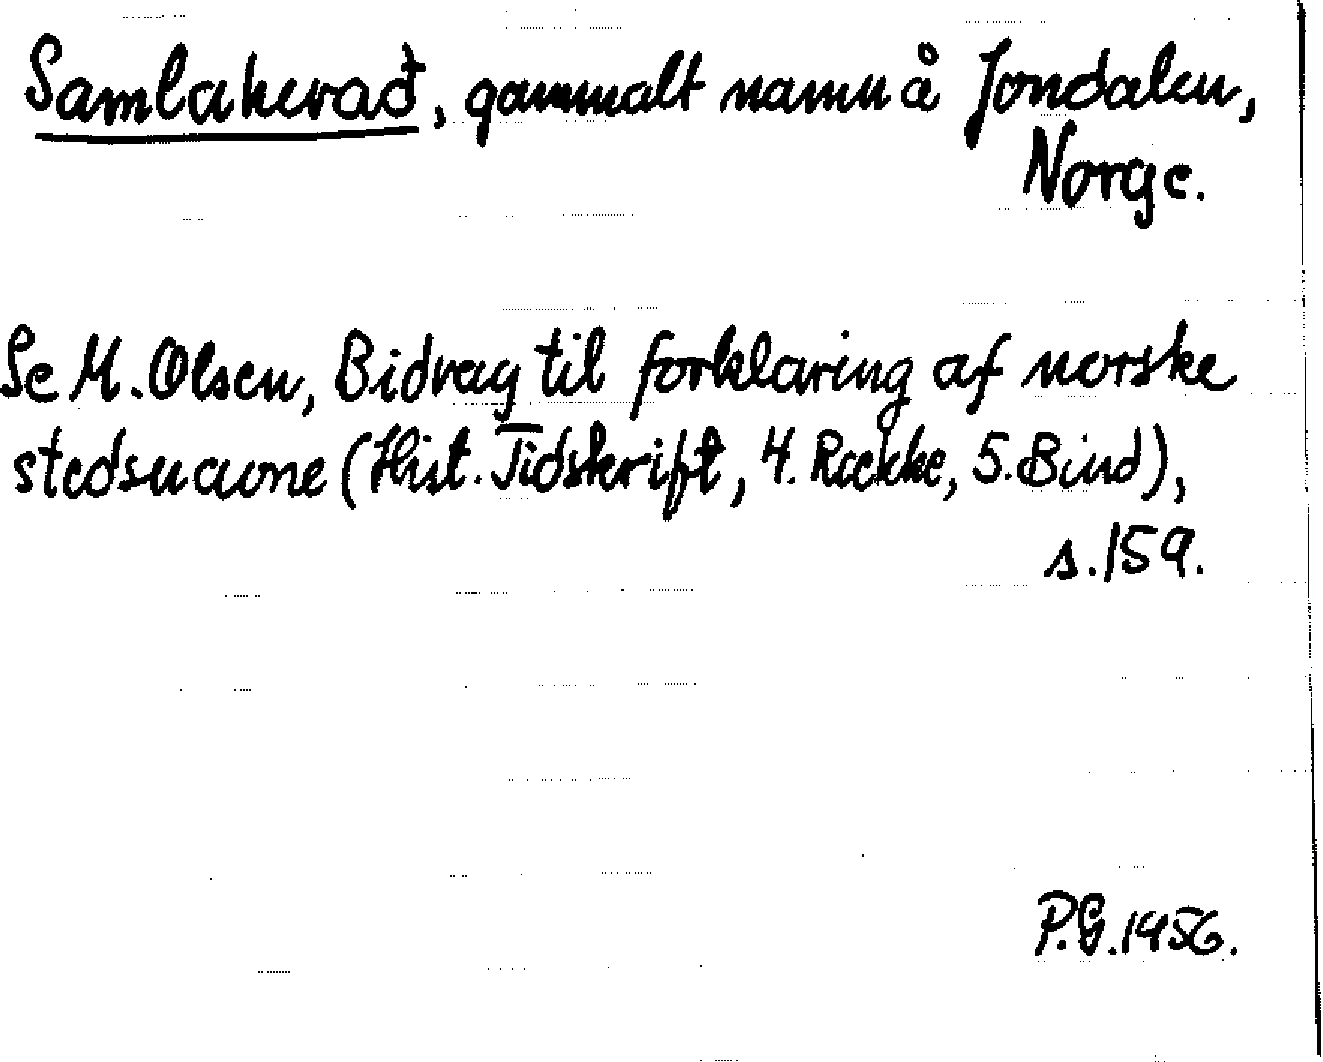 Samlaherað, gammalt namn å Jondalen,
Norge.
Se M. Olsen, Bidrag til forklaring af norske
stedsnavne (Hist. Tidskrift, 4. Række, 5. Bind),
s. 159.
P.G. 1956.